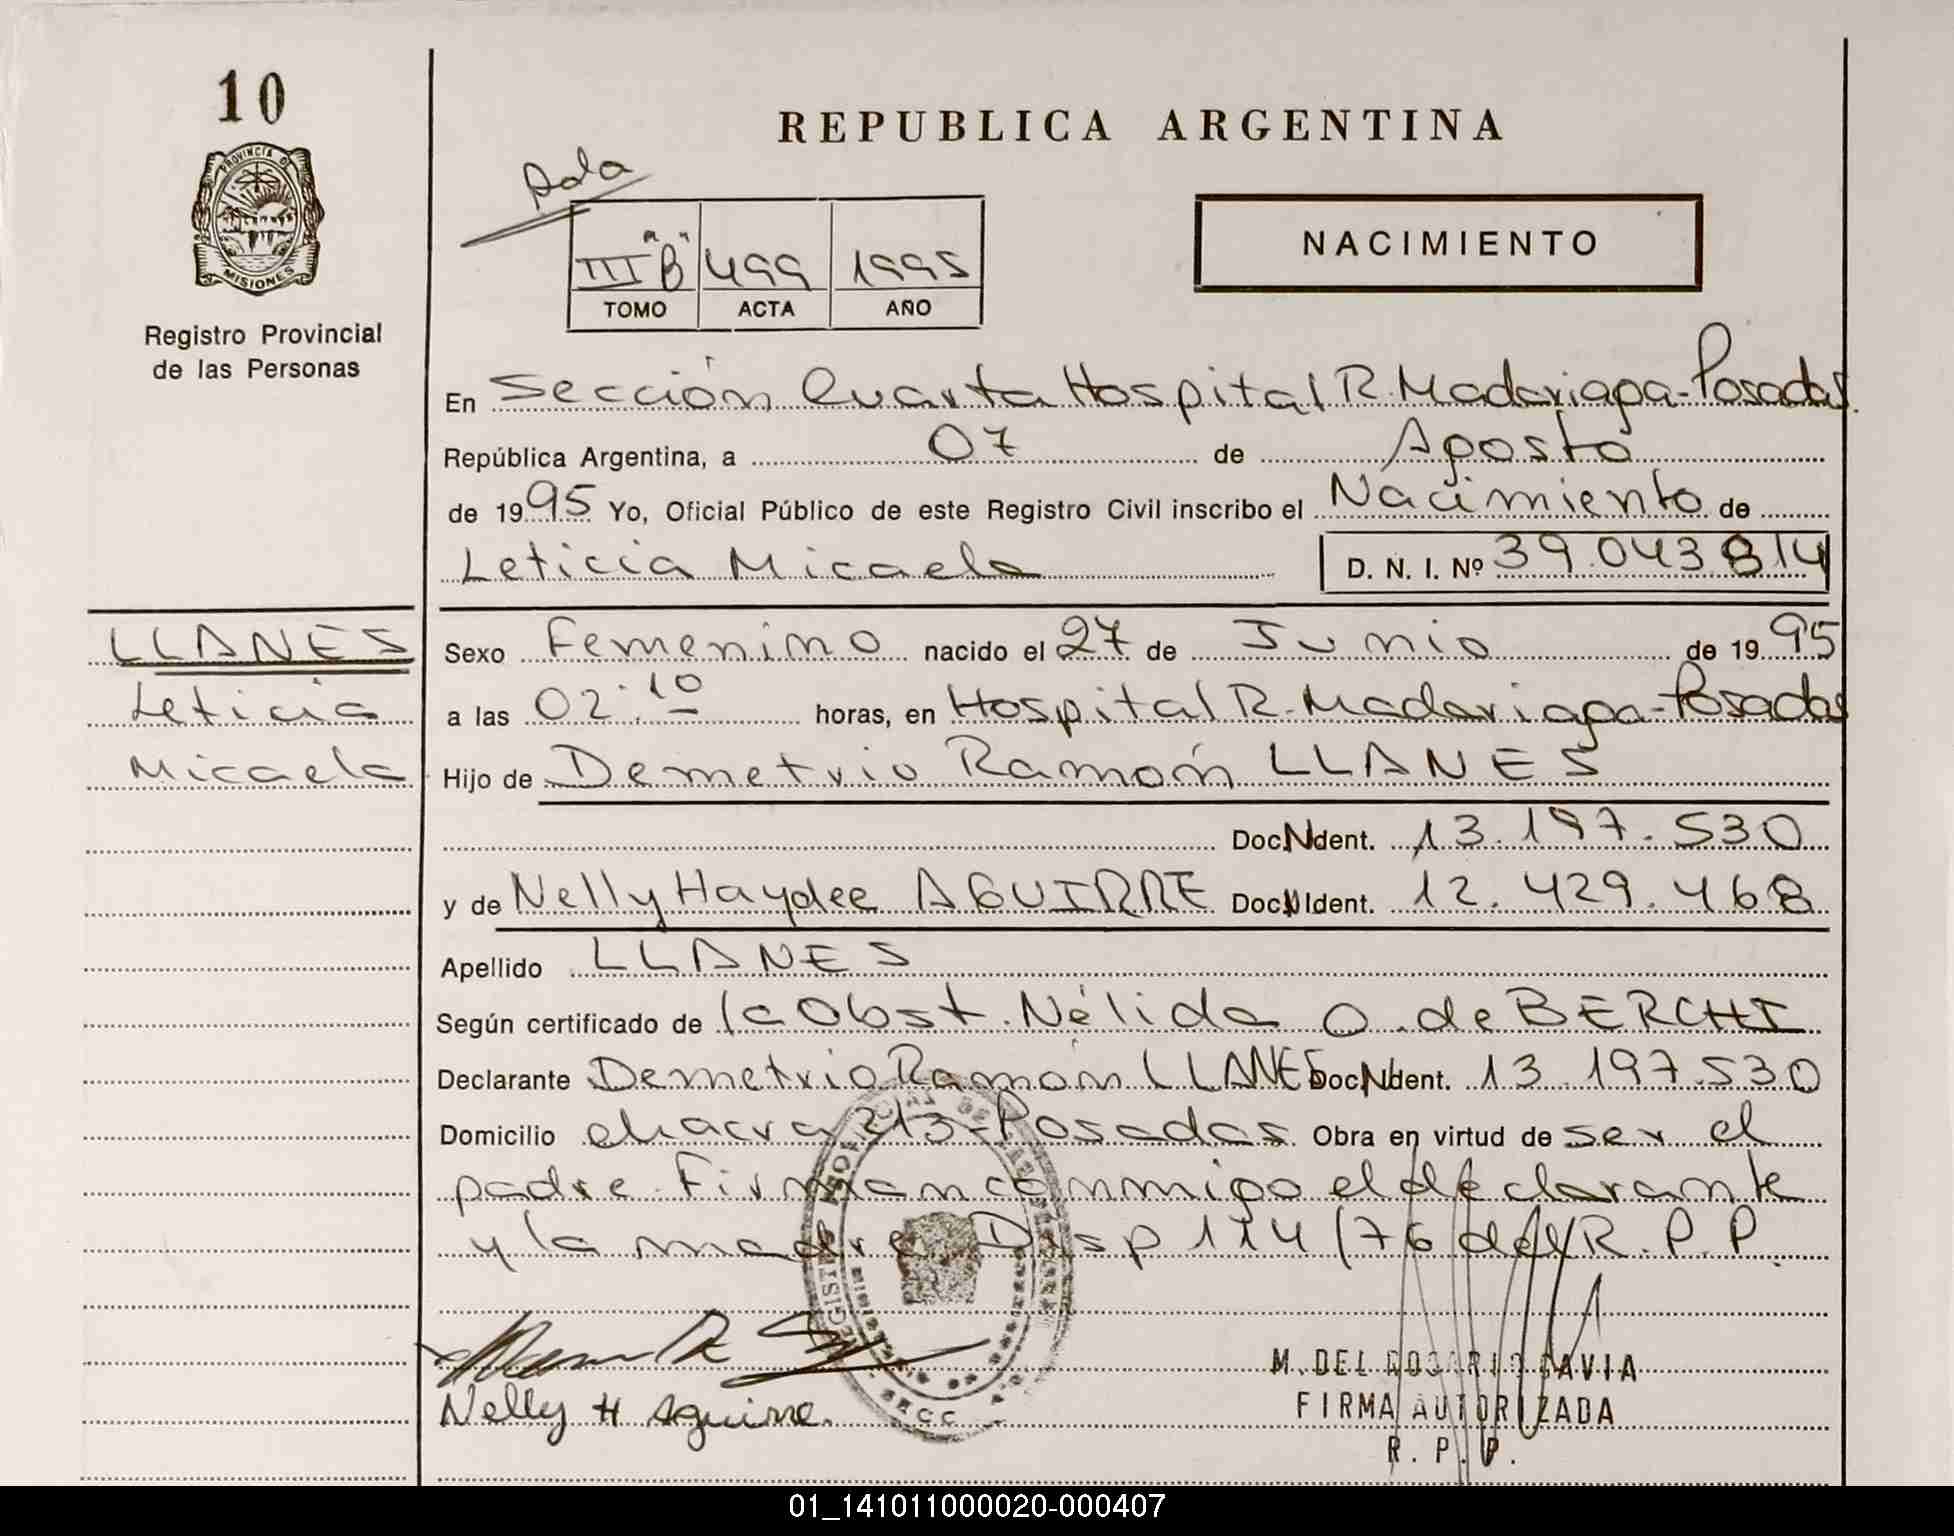 10
PROVINCIA DE
MISIONES
Registro Provincial
de las Personas
REPUBLICA ARGENTINA
III "B" 499 1995
TOMO ACTA AÑO
NACIMIENTO
En Sección Cuarta Hospital R. Madariaga-Posadas.
República Argentina, a 07 de Agosto
de 1995 Yo, Oficial Público de este Registro Civil inscribo el Nacimiento de
Leticia Micaela D. N. I. Nº 39.043.814
LLANES
Leticia
Micaela
Sexo Femenino nacido el 27 de Junio de 1995
a las 02:10 horas, en Hospital R. Madariaga-Posadas
Hijo de Demetrio Ramón LLANES
Doc. Ident. 13.197.530
y de Nelly Haydee AGUIRRE Doc. Ident. 12.429.468
Apellido LLANES
Según certificado de la Obst. Nélida O. de BERCHI
Declarante Demetrio Ramón LLANES Doc. Ident. 13.197.530
Domicilio chacra 213-Posadas Obra en virtud de ser el
padre. Firman conmigo el declarante
y la madre Disp 114/76 del R. P. P.
Nelly H Aguirre.
M. DEL ROSARIO GAVIA
FIRMA AUTORIZADA
R. P. P.
01_141011000020-000407